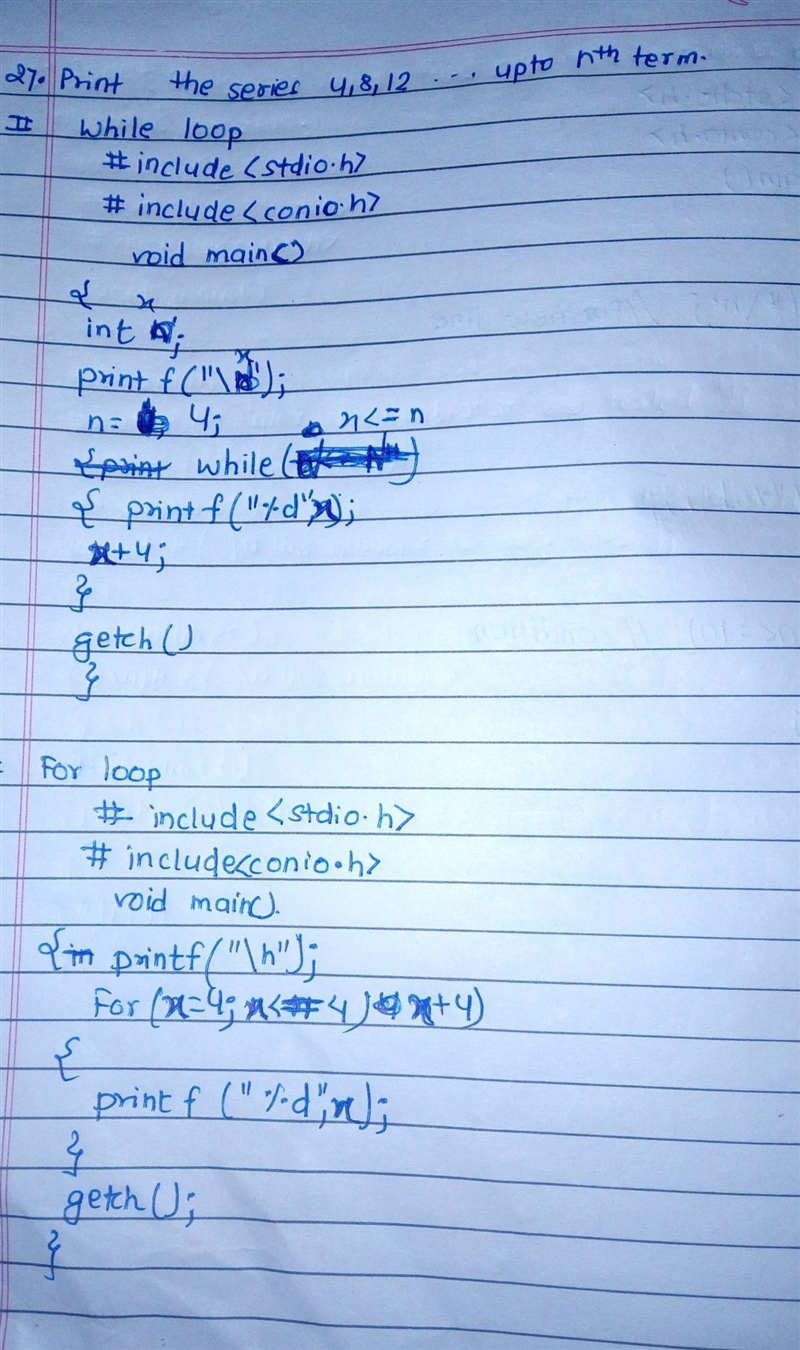 27. Print the series 4,8,12 ... upto nth term.
II while loop
# include <stdio.h>
# include <conio.h>
void main()
{ x
int ;
printf("\x");
n= 4; x<=n
{print while( )
{ printf("%d",x);
x+4;
}
getch()
}
For loop
# include <stdio.h>
# include<conio.h>
void main().
{in printf("\n");
For (x=4; x< 4) x+4)
{
printf ("%d",x);
}
getch();
}